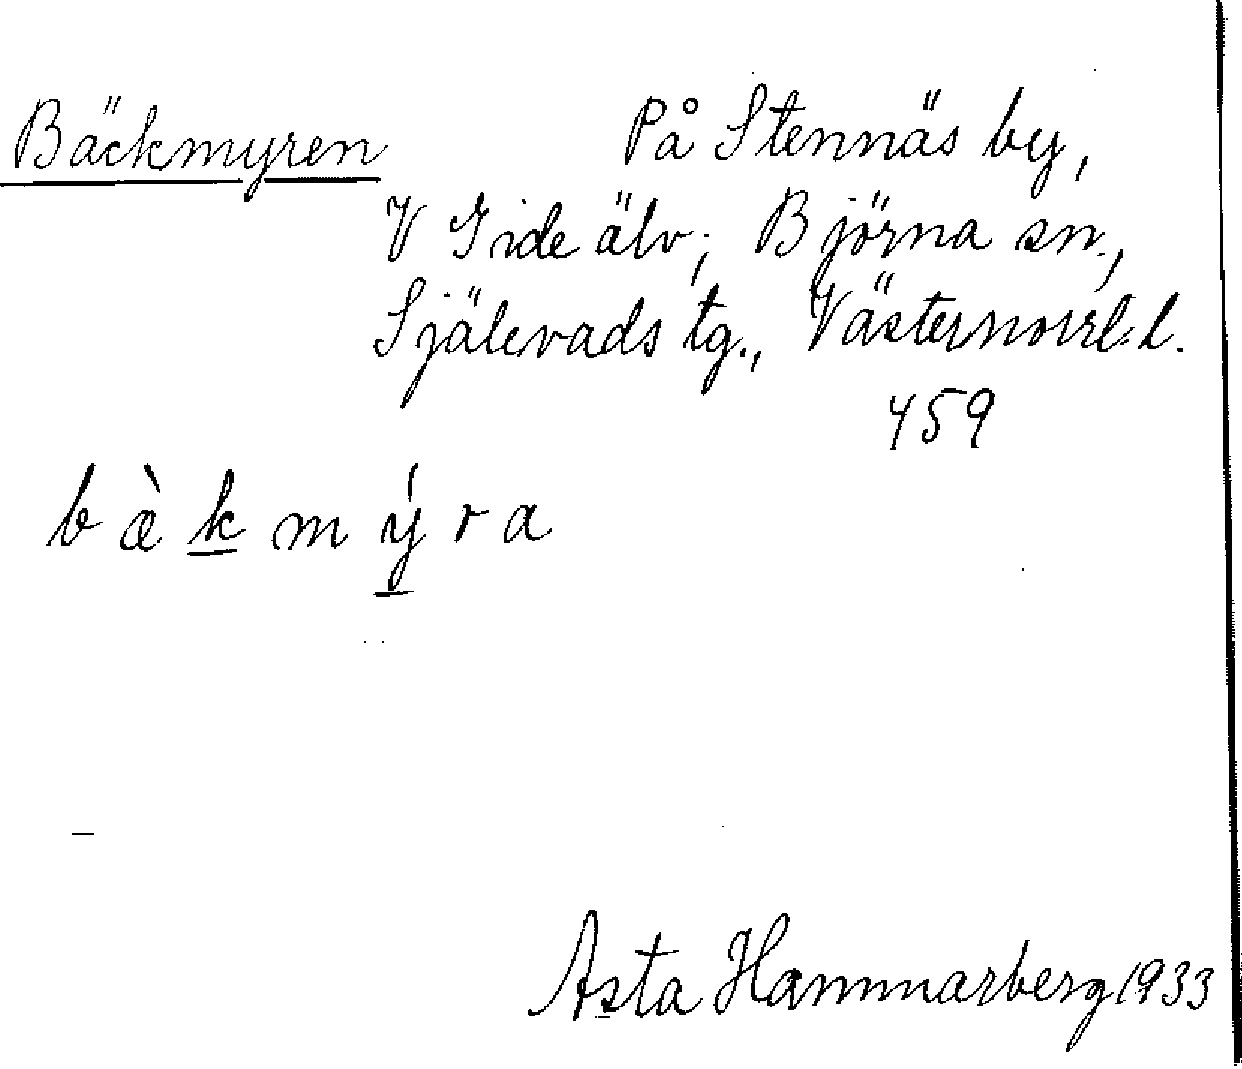 Bäckmyren På Stennäs by,
V Gide älv; Björna sn.,
Själevads tg., Västernorrl. l.
459
b æ̀ k m ý r a
Asta Hammarberg 1933